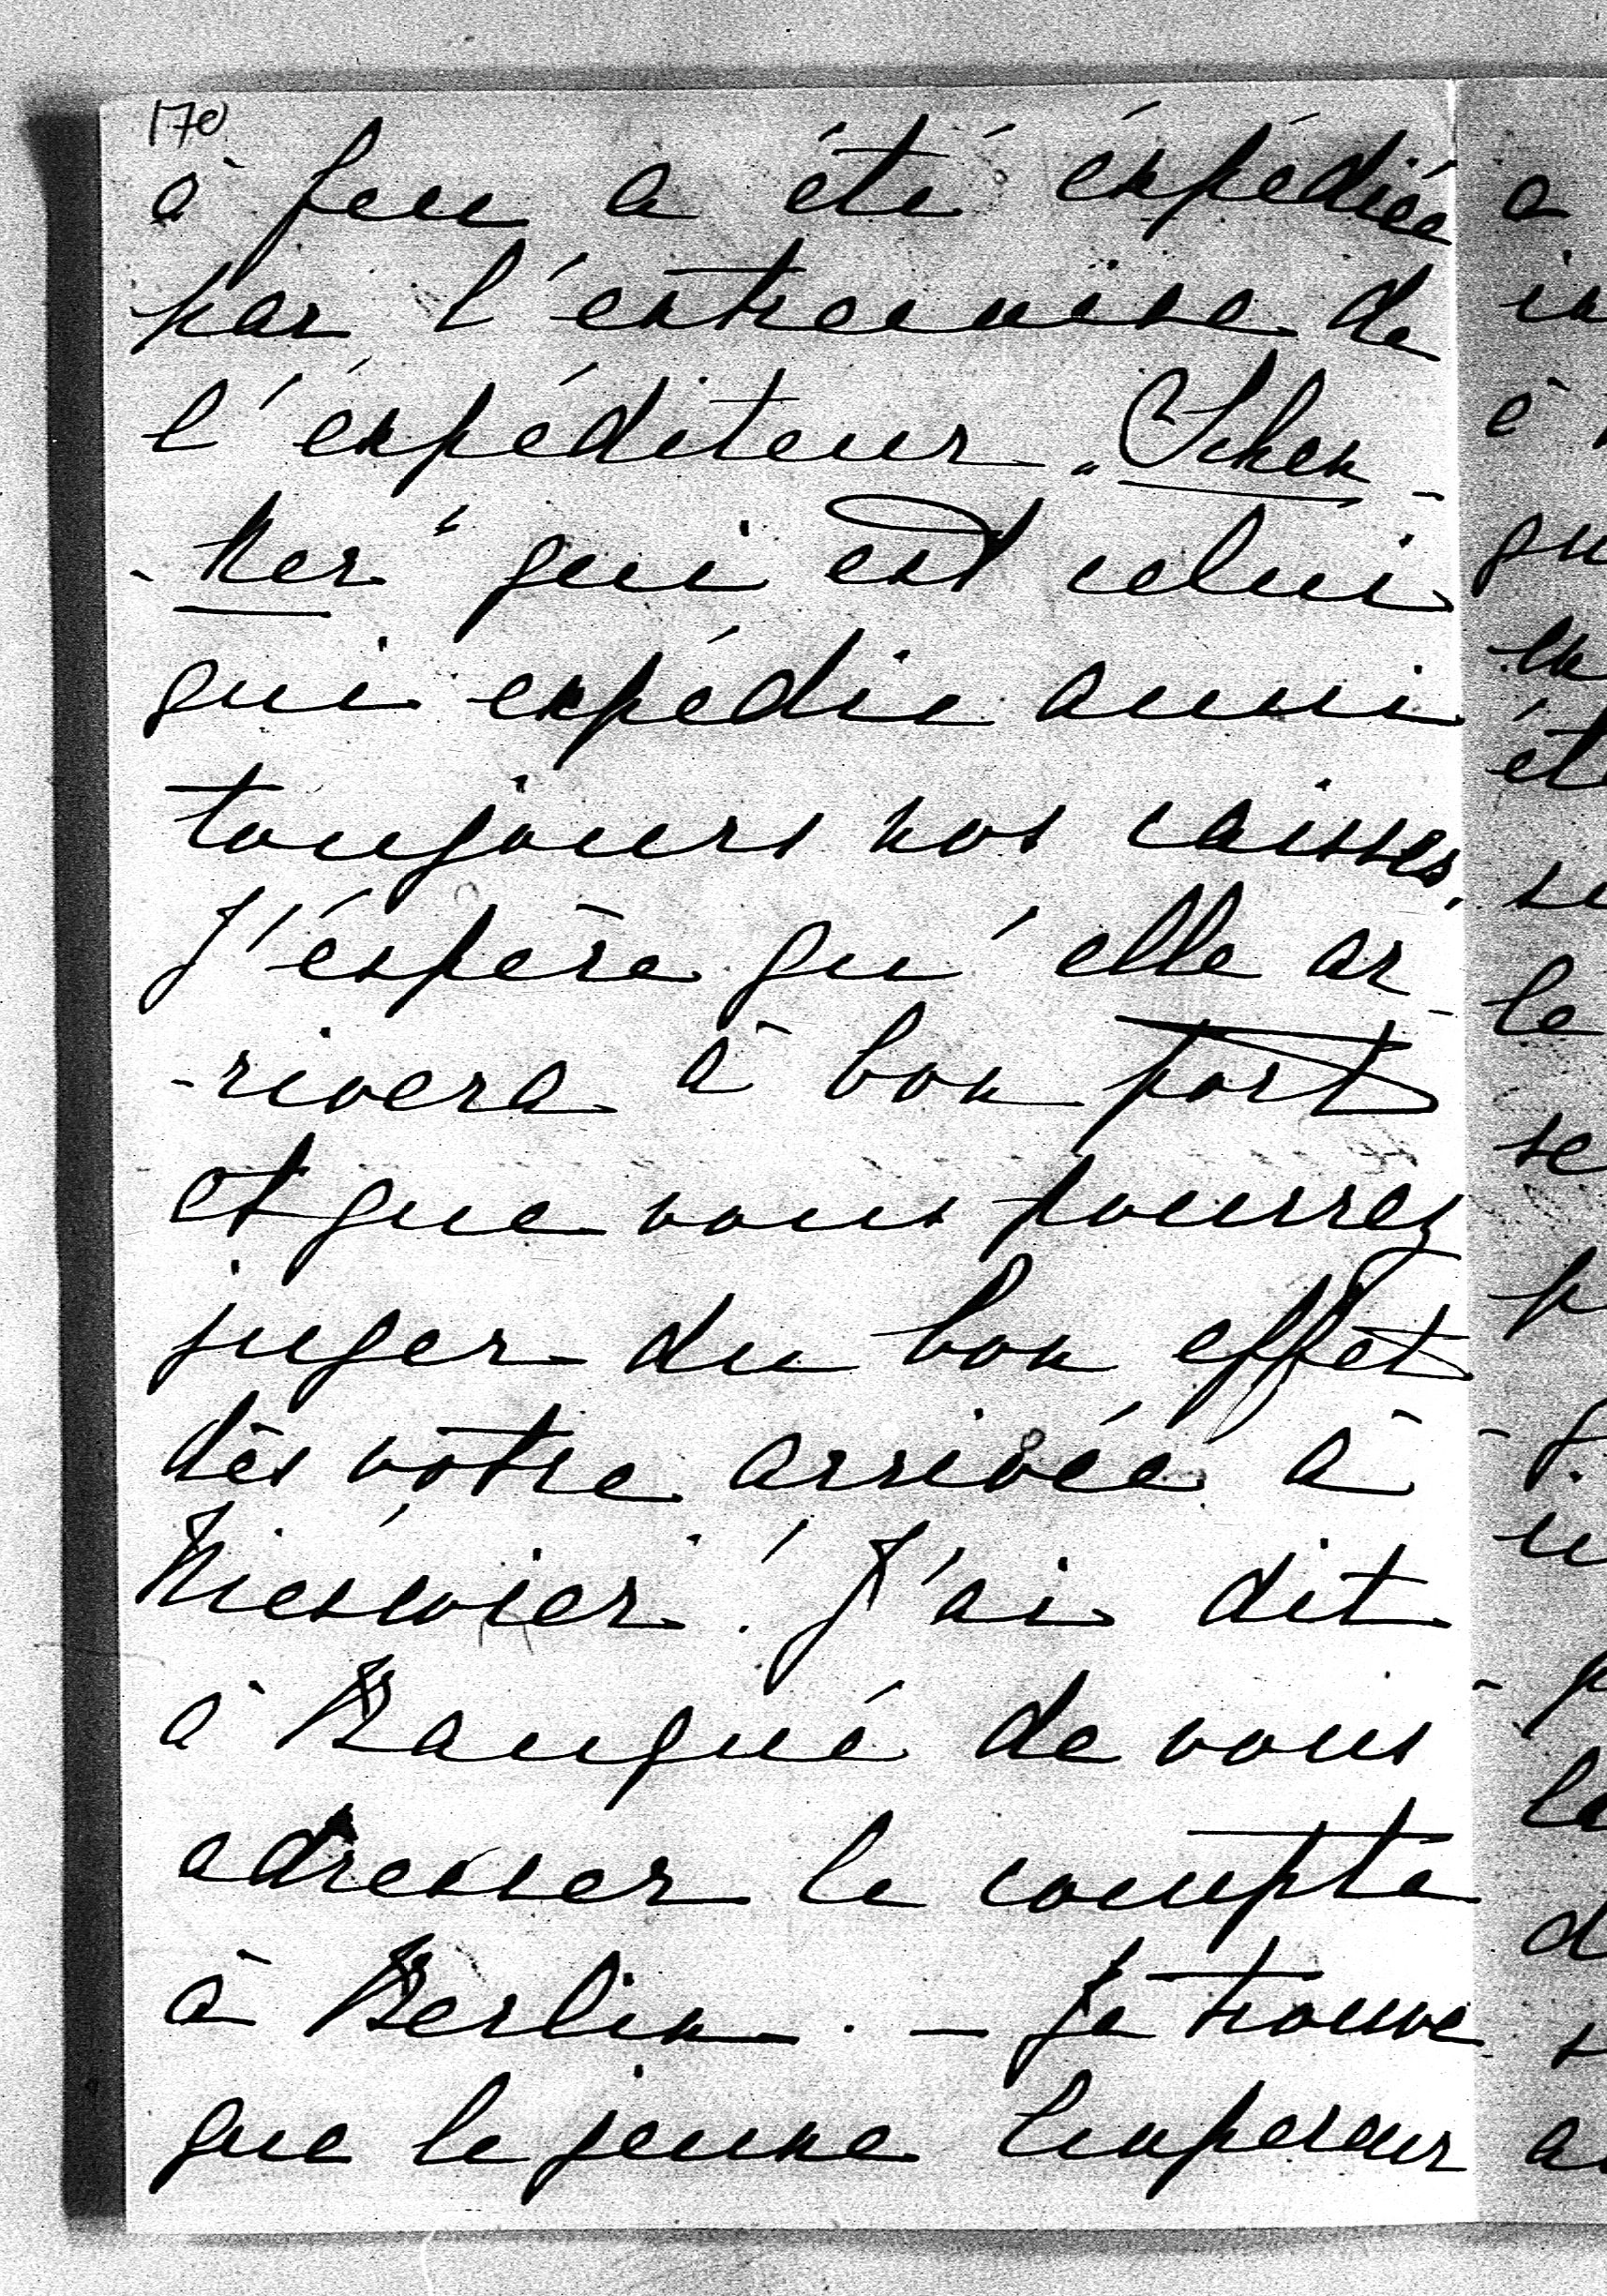 170
à feu a été éxpédiée
par l'entremise de
l'éxpéditeur „Schen-
-ker" qui est celui
qui expédie aussi
toujours nos caisses.
J'éspère qu'elle ar-
-rivera à bon port
et que vous pourrez
juger du bon effet
dès votre arrivée à
Nieswier! J'ai dit
à Baugué de vous
adresser le compte
à Berlin. — Je trouve
que le jeune Empereur